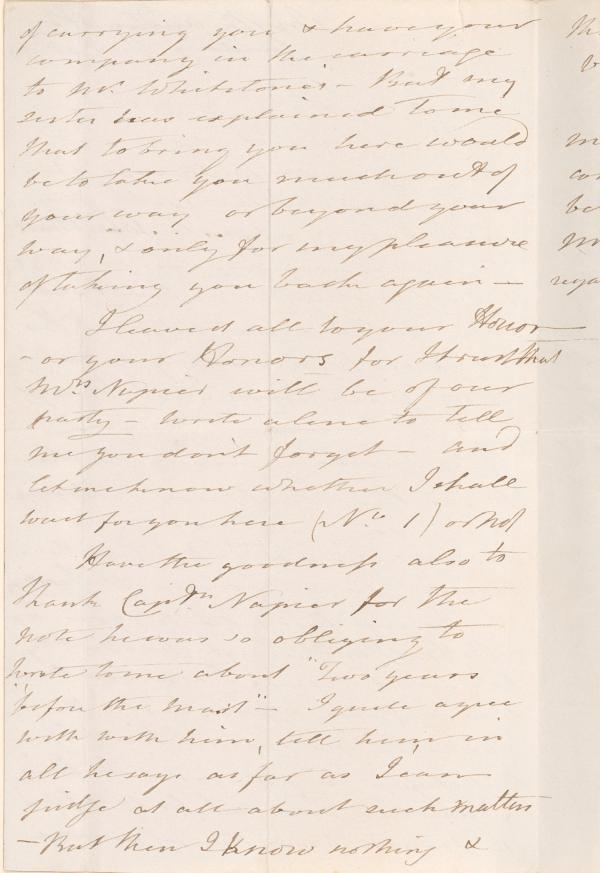 of carrying you & have your
company in the carriage
to Mr. Whitstones – But my
sister has explained to me
that to bring you here would
be to take you much out of
your way or beyond your
way, & only for my pleasure
of taking you back again –
I leave it all to your Honor
– or your Honors for I trust that
Mrs Napier will be of our
party – write a line to tell
me you don't forget – and
let me know whether I shall
wait for you here (No 1) or not
Have the goodness also to
thank Captn Napier for the
note he was so obliging to
write to me about "Two years
"before the Mast" – I quite agree
with with him, tell him, in
all he says as far as I can
judge at all about such matters
– But then I know nothing &
Mr
m
co
be
M
rega